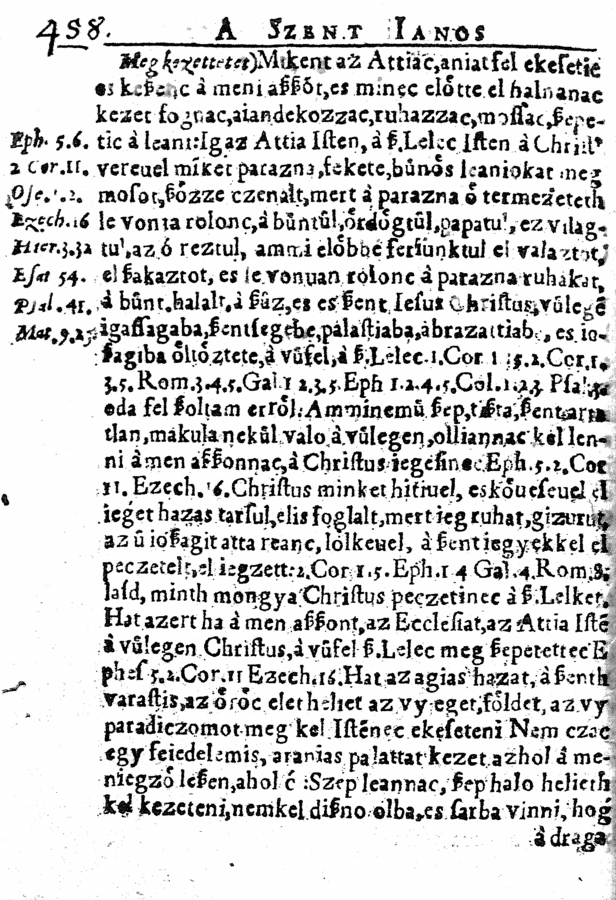 458. A SZENT IANOS
Meg kezettetet) Mikent az Attiac, aniat fel ekesetic
es keßenc à meni aßßót, es minec elótte el halnanac
kezet fognac, aiandekozzac, ruhazzac, mossac, ßepe-
Eph. 5.6. tic à leant: Igaz Attia Isten, à ß. Lelec Isten à Christ'
2 Cor. 11. vereuel miket parazna, fekete, bůnôs leaniokat meg
Ose. 1.2. mosot, ßôzze czenalt, mert à parazna ô termezeteth
Ezech. 16 le vonta rolonc, à bůntůl, ôrdôgtůl, papatul, ez vilag-
Hier. 3.32 tul, az ó reztul, ammi elôbbe feriunktul el valaztot,
Esai 54. el ßakaztot, es le vonuan rolonc à parazna ruhakat,
Psal. 45. à bůnt, halalt, à ßůz, es es ßent Iesus Christus, vůlegē
Mat. 9.25. igassagaba, ßentsegebe, palastiaba, abrazattiaba, es io-
ßagiba ôltôztete, à vůfel, à ß. Lelec. 1. Cor 1.5. 2. Cor. 1.
3.5. Rom. 3.4.5. Gal. 1 2.3.5. Eph 1.2.4.5. Col. 1.2.3
oda fel ßoltam errôl: Amminemů ßep, tißta,
tlan, makula nekůl valo à vůlegen, olliannac kel len-
ni à men aßßonnac, à Christus iegesinec Eph. 5. 2. Cor
11. Ezech. 16. Christus minket hitiuel, eskôueseuel el
ieget hazas tarsul, el is foglalt, mert ieg ruhat, gizurut,
az ů ioßagit atta reanc, lôlkeuel, à ßent iegyekkel el
peczetelt, el iegzett: 2. Cor 1.5. Eph. 1 4 Gal. 4. Rom. 8.
lasd, minth mongya Christus peczetinec à ß. Lelket.
Hat azert ha à men aßßont, az Ecclesiat, az Attia Istē
à vůlegen Christus, à vůfel ß. Lelec meg ßepetettec E
phes 5. 2. Cor. 11 Ezech. 16. Hat az agias hazat, à ßenth
varastis, az ôrôc elet heliet az vy eget, fôldet, az vy
paradiczomot meg kel Istēnec ekeseteni Nem czac
egy feiedelemis, aranias palattat kezet azhol à me-
niegzô leßen, ahol é : Szep leannac, ßep halo helieth
kel kezeteni, nem kel dißno olba, es sarba vinni, hog
à draga